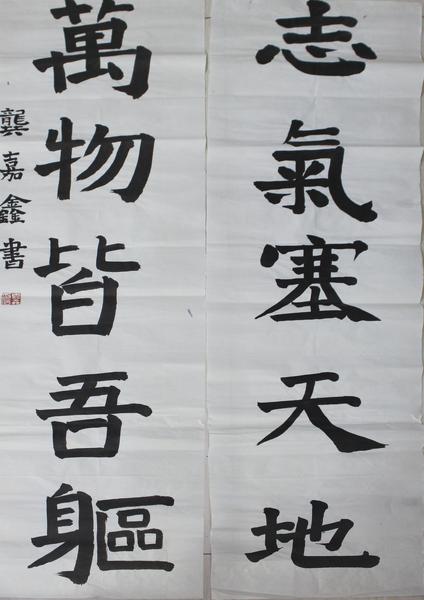 志氣塞天地
萬物皆吾軀
龔嘉鑫書